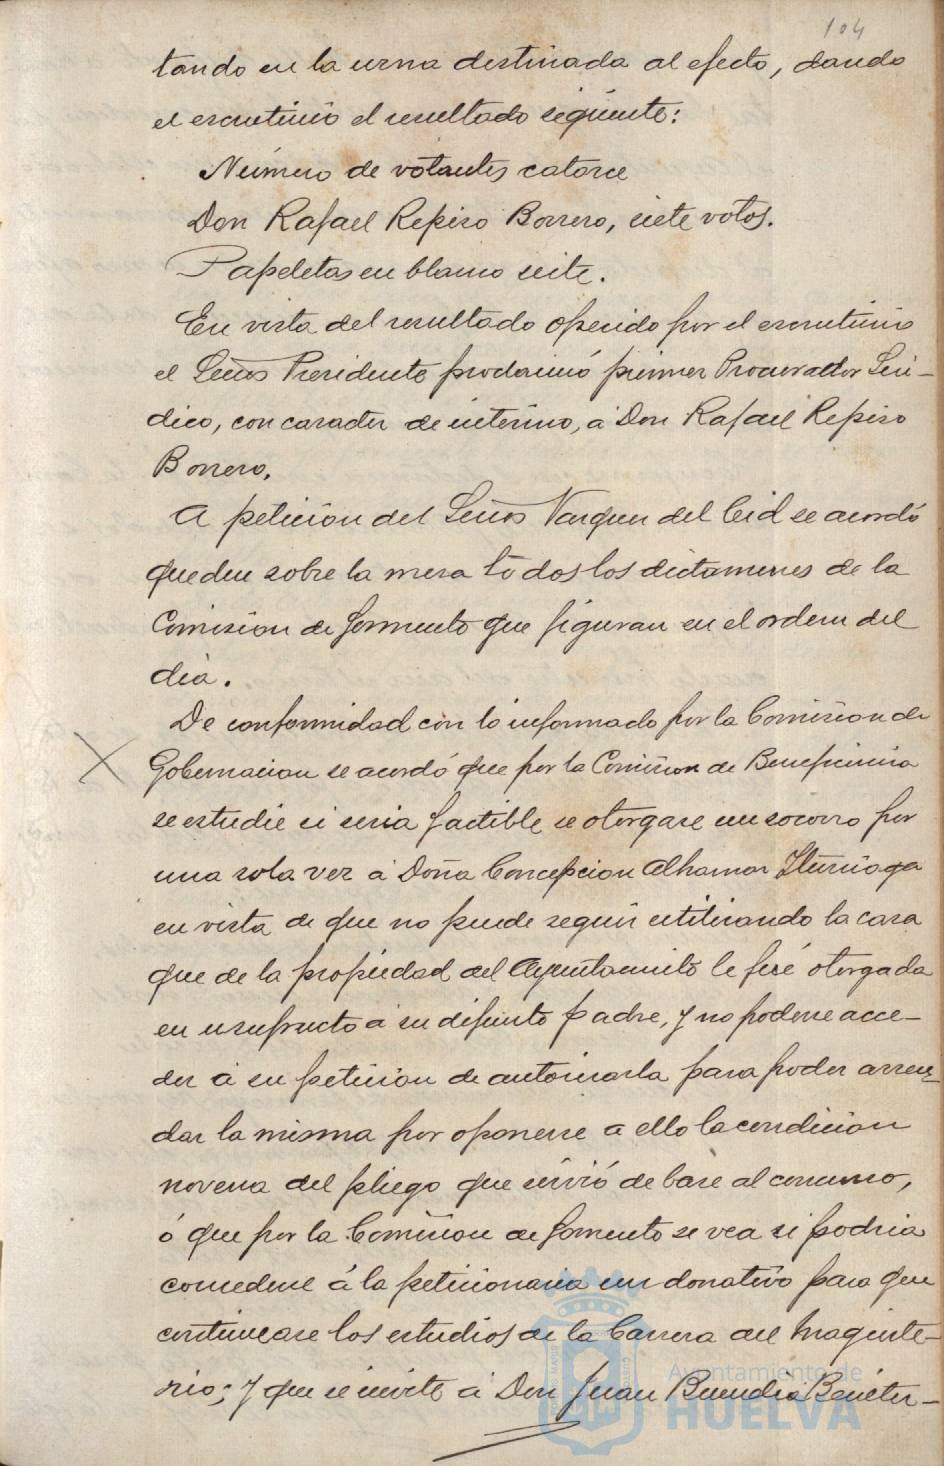 104
tando en la urna destinada al efecto, dando
el escrutinio el resultado siguiente:
Número de votantes catorce
Don Rafael Repiso Borrero, siete votos.
Papeletas en blanco siete.
En vista del resultado ofrecido por el escrutinio
el Señor Presidente proclamó primer Procurador Sín-
dico, con caracter de interino, á Don Rafael Repiso
Borrero.
A petición del Señor Vazquez del Cid se acordó
queden sobre la mesa todos los dictamenes de la
Comision de Fomento que figuran en el orden del
dia.
De conformidad con lo informado por la Comision de
Gobernacion se acordó que por la Comision de Beneficencia
se estudie si seria factible se otorgase un socorro por
una sola vez á Doña Concepcion Alhamar
en vista de que no puede seguir utilizando la casa
que de la propiedad del Ayuntamiento le fué otorgada
en usufructo á su difunto padre, y no poderse acce-
der á su petición de autorizarla para poder arren-
dar la misma por oponerse a ello la condicion
novena del pliego que sirvió de base al concurso,
ó que por la Comision de Fomento se vea si podria
concederse á la peticionaria un donativo para que
continuase los estudios de la Carrera del Magiste-
rio; y que se invite á Don Juan Buendia
Ayuntamiento de
HUELVA